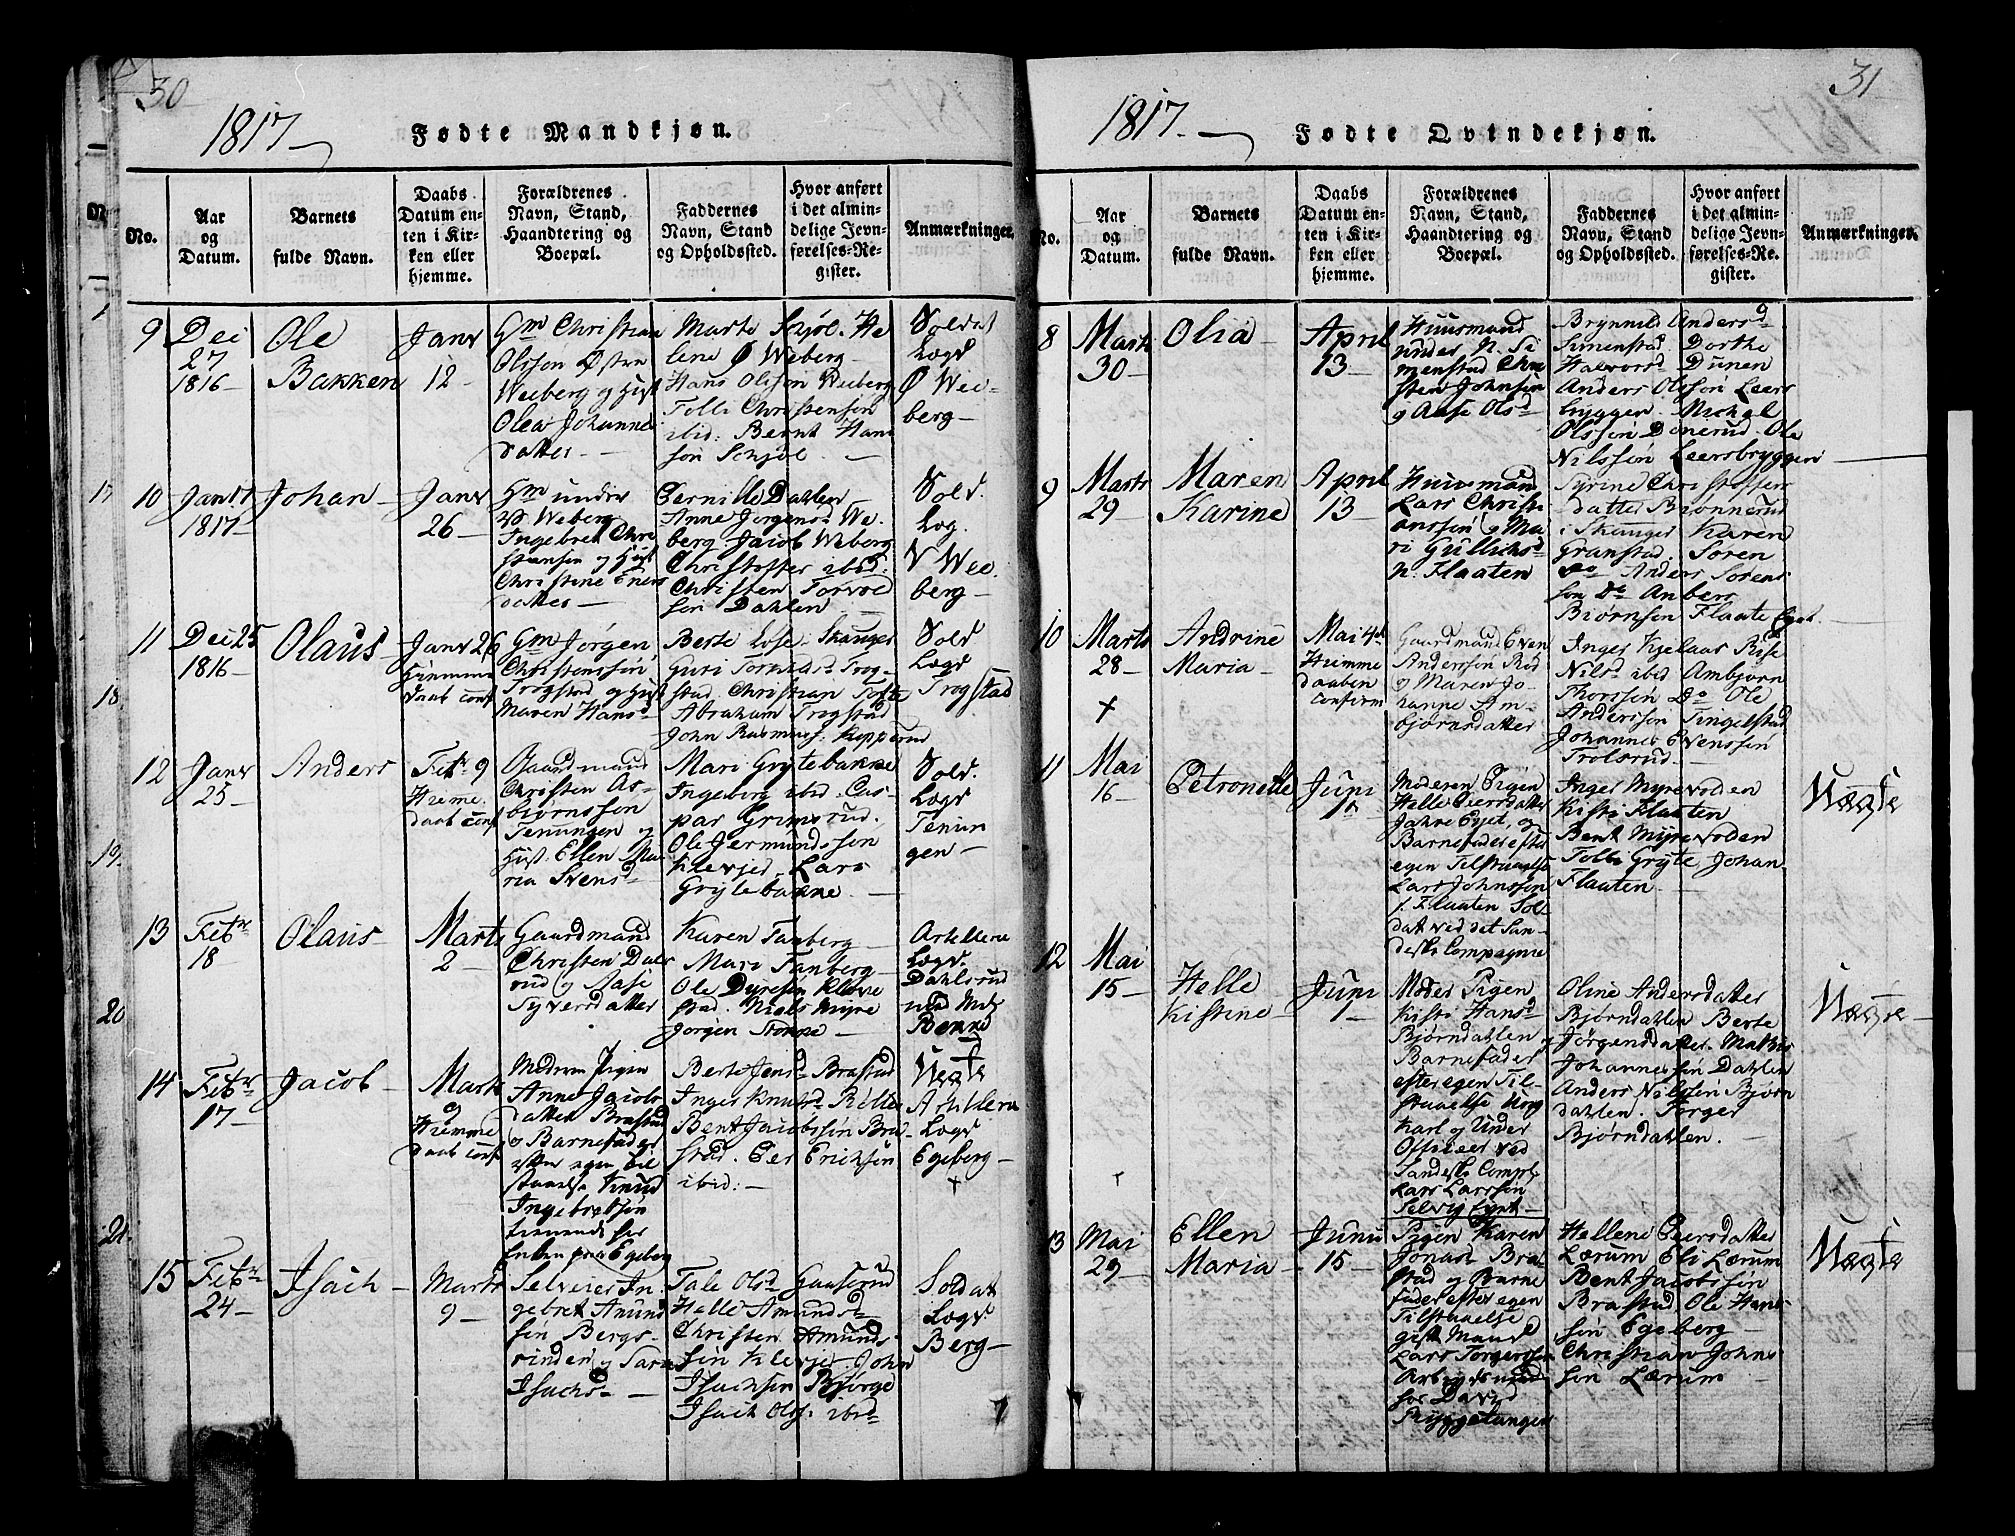 30
1817
Fødte Mandkjøn.
No.
Aar
og
Datum.
Barnets
fulde Navn.
Daabs
Datum en-
ten i Kir-
ken eller
hjemme.
Forældrenes
Navn, Stand,
Haandtering og
Boepæl.
Faddernes
Navn, Stand
og Opholdssted.
Hvor anført
i det almin-
delige Jevn-
førelses-Re-
gister.
Anmærkninger.
9
Dec
27
1816
Ole
Bakken
Janv
12
Gm Christian
Olsson Østre
Weeberg og Hust
Olea Johannes
datter
Marte Schjøl. He
lene Ø Weberg
Hans Olsson Weeberg
Tolle Christensen
ibid: Bernt Han
sen Schjøl
Soldat
Lægd
Ø Wee-
berg
10
Jan 17
1817
Johan
Janv
26
Gm under
V Weberg
Ingebret Chri
stensen og Hust
Christine Eners
datter
Pernille Dahlen
Anne Jørgensd We
berg. Jacob Weberg
Christoffer ibid:
Christen Torvold
sen Dahlen
Sold.
Læg.
V Wee.
berg
11
Dec 25
1816
Olaus
Janv 26
Hiemme
daab conf
Gm Jørgen
Christenssøn
Trogstad og Hust
Maren Hansd
Berte Lose Skanger
Guri Tormodsd Trog
stad. Christian Tofte
Abraham Trogstad
John Rasmuss. Kopperud
Sold
Lægd
Trogstad
12
Janv
25
Anders
Febr 9
Hiemme
daab conf
Gaardmand
Christen As-
biørnssøn
Tenungen og
Hust. Ellen Ma-
ria Svensd
Mari Grytebakke
Ingeborg ibid. Cas-
par Grimsrud.
Ole Jermundssøn
Klevjer. Lars
Grytebakke
Sold.
Lægd
Tenun
gen
13
Febr
18
Olaus
Marts
2
Gaardmand
Christen Dals
rud og Aase
Syversdatter
Karen Tanberg
Mari Tanberg
Ole Dyresen Kleve
stad. Niels Myre
Jørgen Stokke
Artelleri
Lægd.
Dahlsrud
14
Febr
17
Jacob
Marts
9
Hiemme
daab conf
Moderen Pigen
Anne Jacobs
datter Brastad
og Barnefader
efter egen til
staaelse Knud
Ingebretsøn
tienende for
Enken paa Egeberg
Berte Jensd Brastad
Inger Knudsd Rolte
Bent Jacobssøn Bra-
stad. Per Ericksøn
ibid:
Uegte
Artilleri
Lægd
Egeberg
15
Febr
24
Isach
Marts
9
Selveier In
gebret Amund
sen Bergs-
vinden og Sara
Isachsd
Tale Olsd Gaaserud
Helle Amundsd
Christen Amunds-
sen Klevjer. John
Isachsen Bjørge
Isach Ols. ibid
Soldat
Lægd
Berg
31
1817
Fødte Qvindekjøn.
No.
Aar
og
Datum.
Barnets
fulde Navn.
Daabs
Datum en-
ten i Kir-
ken eller
hjemme.
Forældrenes
Navn, Stand,
Haandtering og
Boepæl.
Faddernes
Navn, Stand
og Opholdssted.
Hvor anført
i det almin-
delige Jevn-
førelses-Re-
gister.
Anmærkninger.
8
Marts
30
Olia
April
13
Huusmand
under N. Si
menstad Chri
sten Johnsen
og Aase Olsd
Brynnild Andersd
Simenstad. Dorthe
Halvorsd Dunen
Anders Olsson Leers
bryggen. Michel
Olssøn Dønerud. Ole
Nilssøn Leersbryggen
9
Marts
29
Maren
Karine
April
13
Huusmand
Lars Christi
anssøn og Ma
ri Gullichsd
N. Flaaten
Syrine Christoffers
datter Brønnerud
i Skauger Karen
Granstad. Søren
Do Anders Sørens
søn Do Anbers
Biørnsen Flaate
10
Marts
28
Andrine
Maria
Mai 4de
Hiemme
daaben
confirm
Gaardmand Even
Anderssøn Rød
og Maren Jo
hanne Am
bjørnsdatter
Inger Kjelaas Rise
Nilsd ibid Ambjørn
Thorssen Do Ole
Anderssøn Tingelstad
Johannes Evenssøn
Trolsrud
11
Mai
16
Petronelle
Juni
1
Moderen Pigen
Helle Peersdatter
Jahre Eyet, og
Barnefader efter
egen Tilstaaelse
Lars Johnssøn
Flaaten Sol-
dat ved det San-
deske Compagnie
Inger Myrevoden
Kisti Flaaten
Bent Myrevoden
Tolle Gryte, Johan
Flaaten
Uægte
12
Mai
15
Helle
Kistine
Juni
1
Moder Pigen
Kisti Hansd
Bjørndahlen og
Barnefader
efter egen Til-
staaelse Ung
Karl og Under
Officeer ved
Sandeske Comp
Lars Larssøn
Selvig Eyet
Oline Andersdatter
Bjørndahlen Berte
Jørgensdatter. Mathis
Johannessøn Dahlen
Anders Nilssøn Bjørn
dahlen. Torger
Bjørndahlen.
Uægte
13
Mai
29
Ellen
Maria
Junii
15
Pigen Karen
Jonasd Bra
stad og Barne
fader efter egen
Tilstaaelse
gift Mand
Lars Torgerssøn
Arbeidsmand
for David
Ryggetangen
Hellene Peersdatter
Lærum Eli Lærum
Bent Jacobssøn
Brastad, Ole Hans-
søn Egeberg
Christian Johns
søn Lærum
Uægte